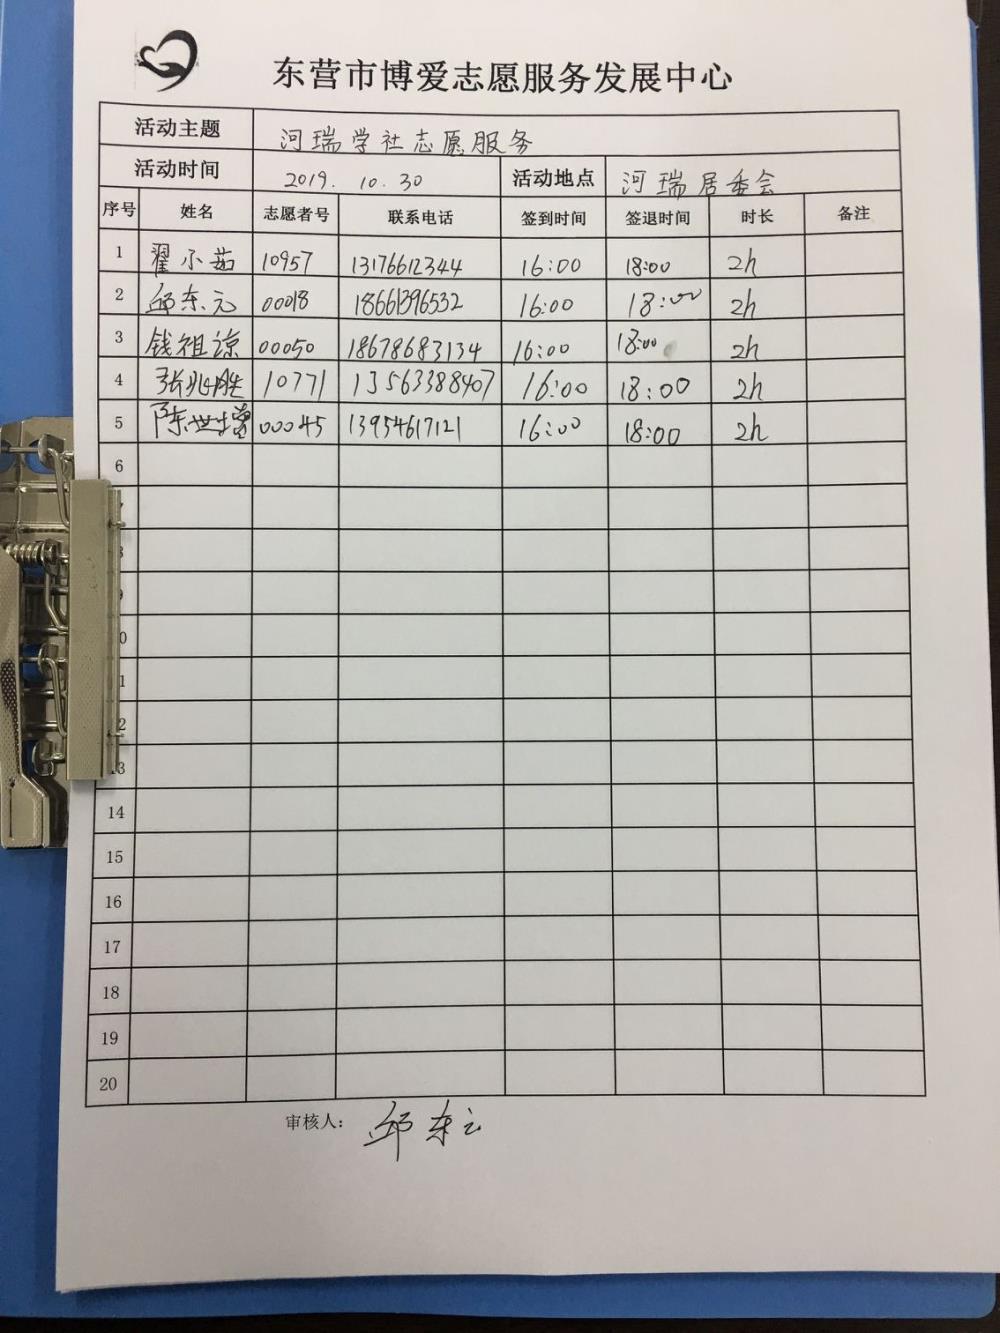 东营市博爱志愿服务发展中心
活动主题 河瑞学社志愿服务
活动时间 2019. 10. 30 活动地点 河瑞居委会
序号 姓名 志愿者号 联系电话 签到时间 签退时间 时长 备注
1 翟小茹 10957 13176612344 16:00 18:00 2h
2 邱东元 00018 18661396532 16:00 18:00 2h
3 钱祖谅 00050 18678683134 16:00 18:00 2h
4 张兆胜 10771 13563388407 16:00 18:00 2h
5 陈世增 00045 13954617121 16:00 18:00 2h
6
3
14
15
16
17
18
19
20
审核人: 邱东元